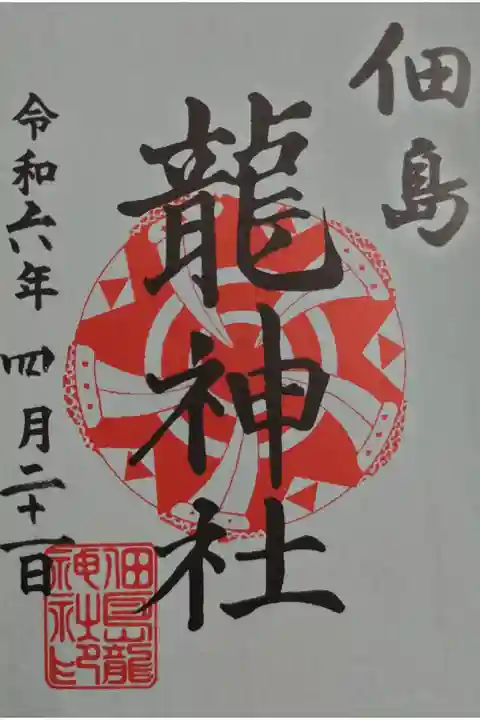 佃島
龍神社
令和六年四月二十一日
佃島龍
神社印